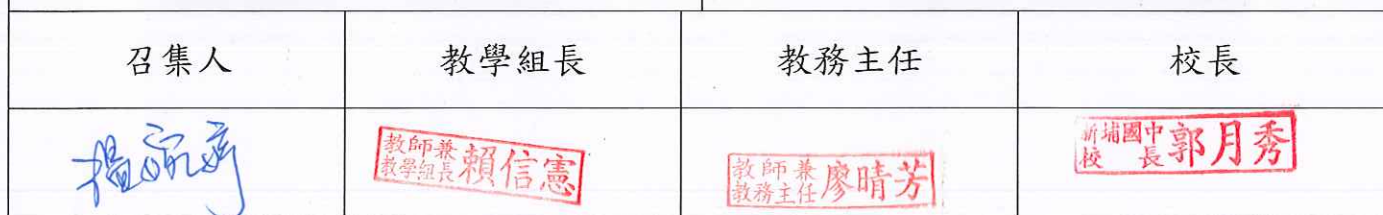 召集人 教學組長 教務主任 校長
教師兼
教學組長 賴信憲
教師兼
教務主任 廖晴芳
新埔國中
校長 郭月秀